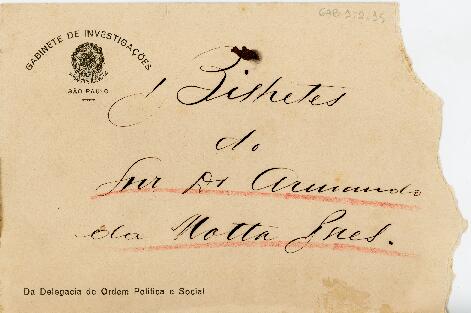 GAB-3-2-35
GABINETE DE INVESTIGAÇÕES
SÃO PAULO
Bilhetes
do
Snr Dr Armando
da Motta Paes.
Da Delegacia de Ordem Politica e Social